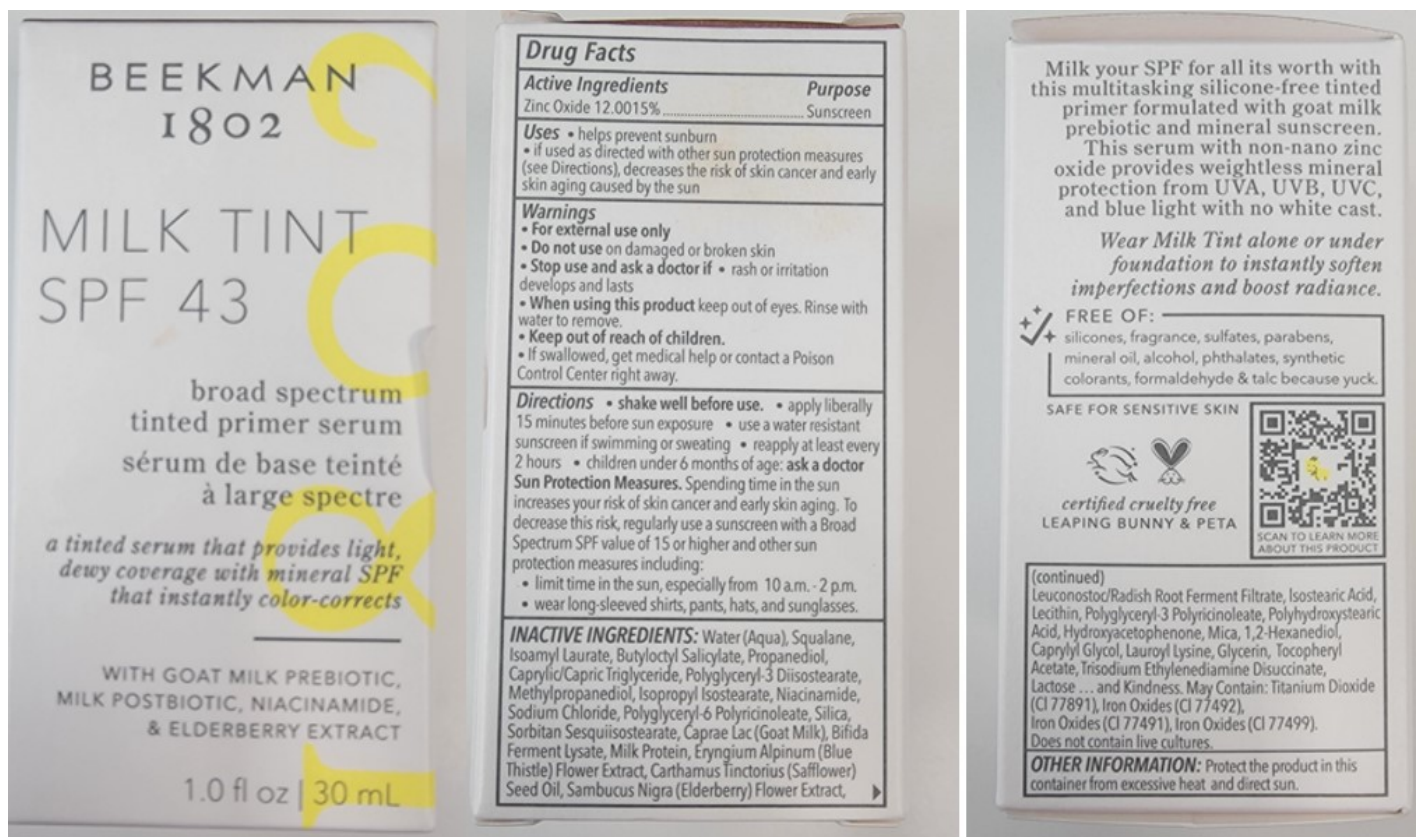 BEEKMAN
1802
MILK TINT
SPF 43
broad spectrum
tinted primer serum
sérum de base teinté
à large spectre
a tinted serum that provides light,
dewy coverage with mineral SPF
that instantly color-corrects
WITH GOAT MILK PREBIOTIC,
MILK POSTBIOTIC, NIACINAMIDE,
& ELDERBERRY EXTRACT
1.0 fl oz | 30 mL
Drug Facts
Active Ingredients Purpose
Zinc Oxide 12.0015% Sunscreen
Uses • helps prevent sunburn
• if used as directed with other sun protection measures
(see Directions), decreases the risk of skin cancer and early
skin aging caused by the sun
Warnings
• For external use only
• Do not use on damaged or broken skin
• Stop use and ask a doctor if • rash or irritation
develops and lasts
• When using this product keep out of eyes. Rinse with
water to remove.
• Keep out of reach of children.
• If swallowed, get medical help or contact a Poison
Control Center right away.
Directions • shake well before use. • apply liberally
15 minutes before sun exposure • use a water resistant
sunscreen if swimming or sweating • reapply at least every
2 hours • children under 6 months of age: ask a doctor
Sun Protection Measures. Spending time in the sun
increases your risk of skin cancer and early skin aging. To
decrease this risk, regularly use a sunscreen with a Broad
Spectrum SPF value of 15 or higher and other sun
protection measures including:
• limit time in the sun, especially from 10 a.m. - 2 p.m.
• wear long-sleeved shirts, pants, hats, and sunglasses.
INACTIVE INGREDIENTS: Water (Aqua), Squalane,
Isoamyl Laurate, Butyloctyl Salicylate, Propanediol,
Caprylic/Capric Triglyceride, Polyglyceryl-3 Diisostearate,
Methylpropanediol, Isopropyl Isostearate, Niacinamide,
Sodium Chloride, Polyglyceryl-6 Polyricinoleate, Silica,
Sorbitan Sesquiisostearate, Caprae Lac (Goat Milk), Bifida
Ferment Lysate, Milk Protein, Eryngium Alpinum (Blue
Thistle) Flower Extract, Carthamus Tinctorius (Safflower)
Seed Oil, Sambucus Nigra (Elderberry) Flower Extract,
Milk your SPF for all its worth with
this multitasking silicone-free tinted
primer formulated with goat milk
prebiotic and mineral sunscreen.
This serum with non-nano zinc
oxide provides weightless mineral
protection from UVA, UVB, UVC,
and blue light with no white cast.
Wear Milk Tint alone or under
foundation to instantly soften
imperfections and boost radiance.
FREE OF:
silicones, fragrance, sulfates, parabens,
mineral oil, alcohol, phthalates, synthetic
colorants, formaldehyde & talc because yuck.
SAFE FOR SENSITIVE SKIN
certified cruelty free
LEAPING BUNNY & PETA
SCAN TO LEARN MORE
ABOUT THIS PRODUCT
(continued)
Leuconostoc/Radish Root Ferment Filtrate, Isostearic Acid,
Lecithin, Polyglyceryl-3 Polyricinoleate, Polyhydroxystearic
Acid, Hydroxyacetophenone, Mica, 1,2-Hexanediol,
Caprylyl Glycol, Lauroyl Lysine, Glycerin, Tocopheryl
Acetate, Trisodium Ethylenediamine Disuccinate,
Lactose ... and Kindness. May Contain: Titanium Dioxide
(CI 77891), Iron Oxides (CI 77492),
Iron Oxides (CI 77491), Iron Oxides (CI 77499).
Does not contain live cultures.
OTHER INFORMATION: Protect the product in this
container from excessive heat and direct sun.